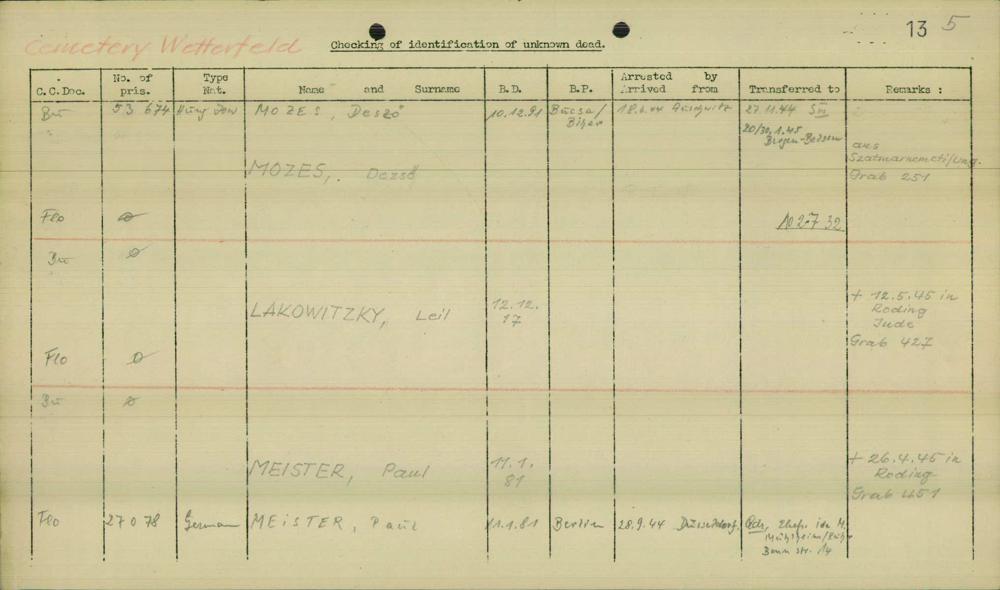 13 5
Cemetery Wetterfeld
Checking of identification of unknown dead.
C.C.Doc. No. of pris. Type Nat. Name and Surname B.D. B.P. Arrested by Arrived from Transferred to Remarks :
Bu 53 674 Hung Jew MOZES, Deszö 10.12.91 Bucsa/ Bihar 18.6.44 Auschwitz 27.11.44 SIII
20/30.1.45
Bergen-Belsen
aus
Szatmarnemeti/Ung.
MOZES, Dezsö Grab 251
Flo ø
10 2.7 32
Bu ø
LAKOWITZKY, Leil 12.12.
17
+ 12.5.45 in
Roding
Jude
Grab 427
Flo ø
Bu ø
MEISTER, Paul 11.1.
81
+ 26.4.45 in
Roding
Grab 451
Flo 27078 German MEISTER, Paul 11.1.81 Berlin 28.9.44 Düsseldorf, Ehefr. Ida M.
str. 14